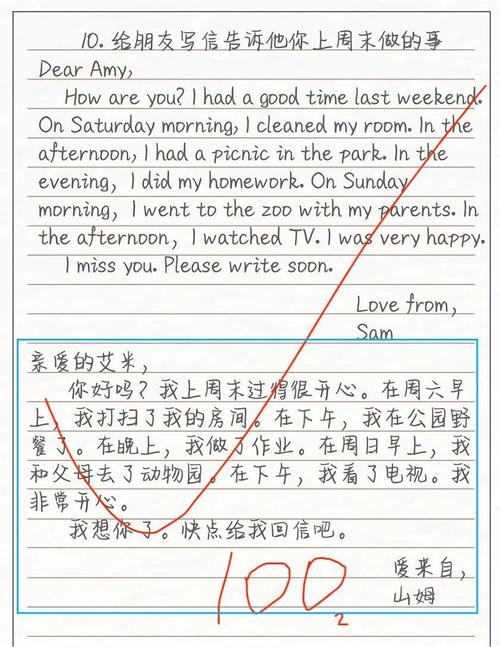 10. 给朋友写信告诉他你上周末做的事
Dear Amy,
How are you? I had a good time last weekend.
On Saturday morning, I cleaned my room. In the
afternoon, I had a picnic in the park. In the
evening, I did my homework. On Sunday
morning, I went to the zoo with my parents. In
the afternoon, I watched TV. I was very happy.
I miss you. Please write soon.
Love from,
Sam
亲爱的艾米,
你好吗？我上周末过得很开心。在周六早
上，我打扫了我的房间。在下午，我在公园野
餐了。在晚上，我做了作业。在周日早上，我
和父母去了动物园。在下午，我看了电视。我
非常开心。
我想你了。快点给我回信吧。
爱来自,
山姆
100
2